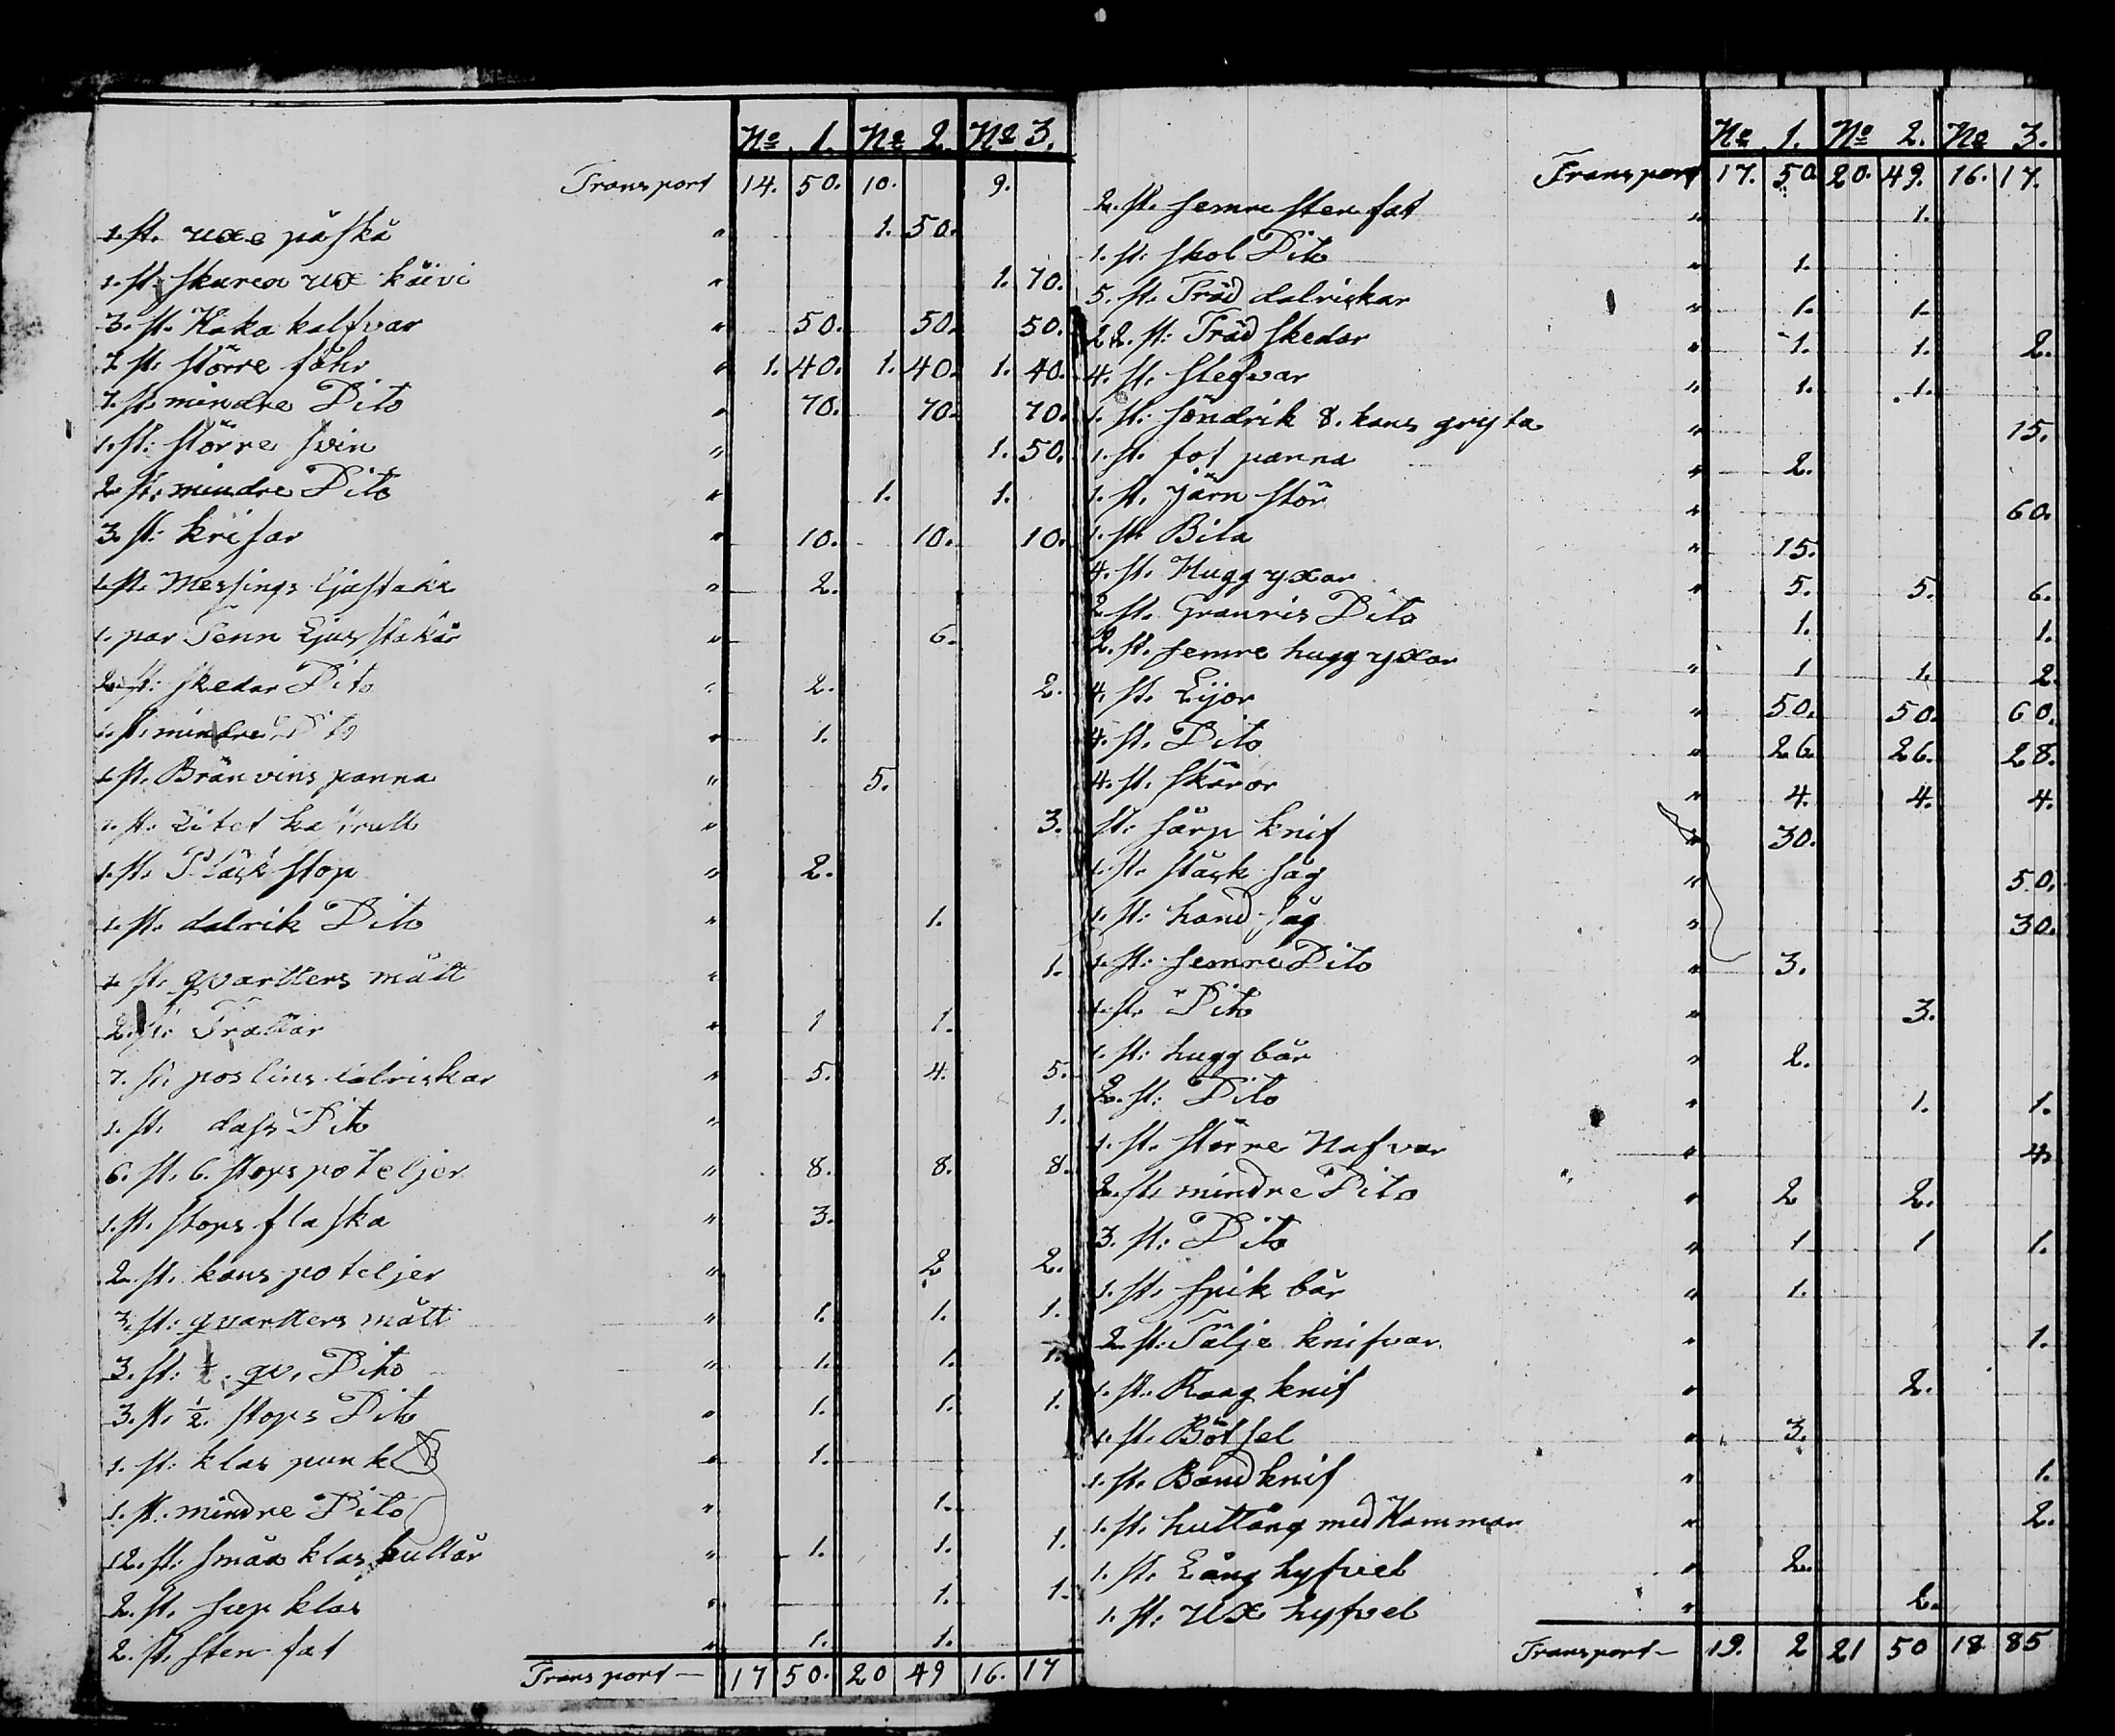 No. 1. No. 2. No. 3.
Transport 14. 50. 10. 9.
1. st. uxe påskå " 1. 50.
1. st. skuren ux kåivi " 1. 70.
3. st. Kaka kalfvar " 50. 50. 50.
7. st. större fåhr " 1. 40. 1. 40. 1. 40.
7. st. mindre Dito " 70. 70. 70.
1. st: större svin " 1. 50.
2. st: mindre Dito " 1. 1.
3. st: krisar " 10. 10. 10.
1. st. Messings ljustaka " 2.
1. par Tenn Ljusstakår " 6.
2. st: skedar Dito " 2. 2.
1. st. mindre Dito " 1.
1. st. Bränvins panna " 5.
1. st. Litet kastrull " 3.
1. st. Pläck stop " 2.
1. st. dalrik Dito " 1.
1. st. qvartters mått " 1.
2. st. Trattar " 1 1.
7. st. poslins talriskar " 5. 4. 5.
1. st. dass Dito " 1.
6. st. 6. stops poteljer " 8. 8. 8.
1. st. stops flaska " 3.
2. st. kans poteljer " 2 2.
3. st: qvartters mått " 1. 1. 1.
3. st: ½. qv. Dito " 1. 1. 1.
3. st. ½. stops Dito " 1. 1. 1.
1. st: klas punk " 1.
1. st. mindre Dito " 1.
12. st: småa klas buttår " 1. 1. 1.
2. st. sup klas " 1. 1.
2. st. sten fat " 1. 1.
Transport — 17 50. 20 49 16. 17
No. 1. No. 2. No. 3.
Transport 17. 50. 20. 49. 16. 17.
2. st. semre sten fat " 1.
1. st: skol Dito " 1.
5. st. Träd dalriskar " 1. 1.
22. st: Träd skedar " 1. 1. 2.
4. st. slefwar " 1. 1.
1. st: söndrik 8. kans gryta " 15.
1. st. fot panna " 2.
1. st. järn stör " 60.
1. st. Bila " 15.
4. st. Hugg yxar " 5. 5. 6.
2. st. Granris Dito 1. 1.
2. st. semre hugg yxar " 1 1. 2.
4. st. Lijor " 50. 50. 60.
4. st. Dito " 26. 26. 28.
4. st. skäror " 4. 4. 4.
st: särp knif " 30.
1. st. stäck såg " 50.
1. st: hand såg " 30.
1. st: semre Dito " 3.
1. st. Dito " 3.
1. st: hugg bår " 2.
2. st: Dito " 1. 1.
1. st. större Nafvar " 4.
2. st. mindre Dito " 2 2.
3. st: Dito " 1 1 1.
1. st. spik bår " 1.
2. st: Tälje knifvar " 1.
1. st. Rang knif " 2.
1. st. Bötsel " 3.
1. st. Band knif " 1.
1. st. huttång med Hammar " 2.
1. st. Lång hyfvel " 2.
1. st: ux hyfvel " 2.
Transport — 19. 2 21 50 18 85